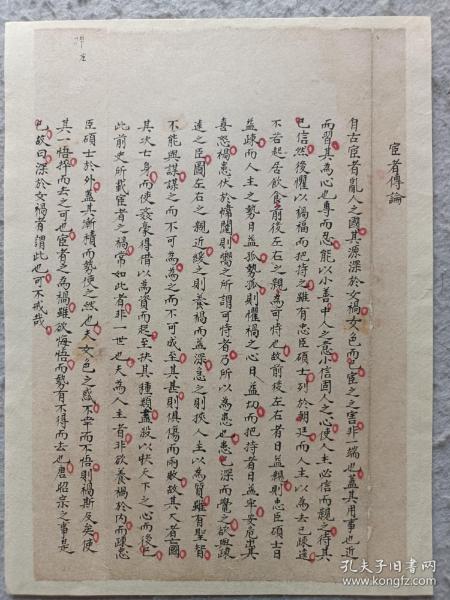 宦者傳論
自古宦者亂人之國其源深於女禍女色而已宦之害非一端也蓋其用事也近
而習其為心也專而忍能以小善中人之意小信固人之心使人主必信而親之待其
已信然後懼以禍福而把持之雖有忠臣碩士列於朝廷而人主以為去己疎遠
不若起居飲食前後左右之親為可恃也故前後左右者日益親則忠臣碩士日
益疎而人主之勢日益孤勢孤則懼禍之心日益切而把持者日益牢安危出其
喜怒禍患伏於帷闥則嚮之所謂可恃者乃所以為患也患已深而覺之欲與疎
遠之臣圖左右之親近緩之則養禍而益深急之則挾人主以為質雖有聖智
不能與謀謀之而不可為為之而不可成至其甚則俱傷而兩敗故其大者亡國
其次亡身而使姦豪得借以為資而起至抉其種類盡殺以快天下之心而後已
此前史所載宦者之禍常如此者非一世也夫為人主者非欲養禍於內而疎忠
臣碩士於外蓋其漸積而勢使之然也夫女色之惑不幸而不悟則禍斯及矣使
其一悟捽而去之可也宦者之為禍雖欲悔悟而勢有不得而去也唐昭宗之事是
已故曰深於女禍者謂此也可不戒哉
孔夫子旧书网